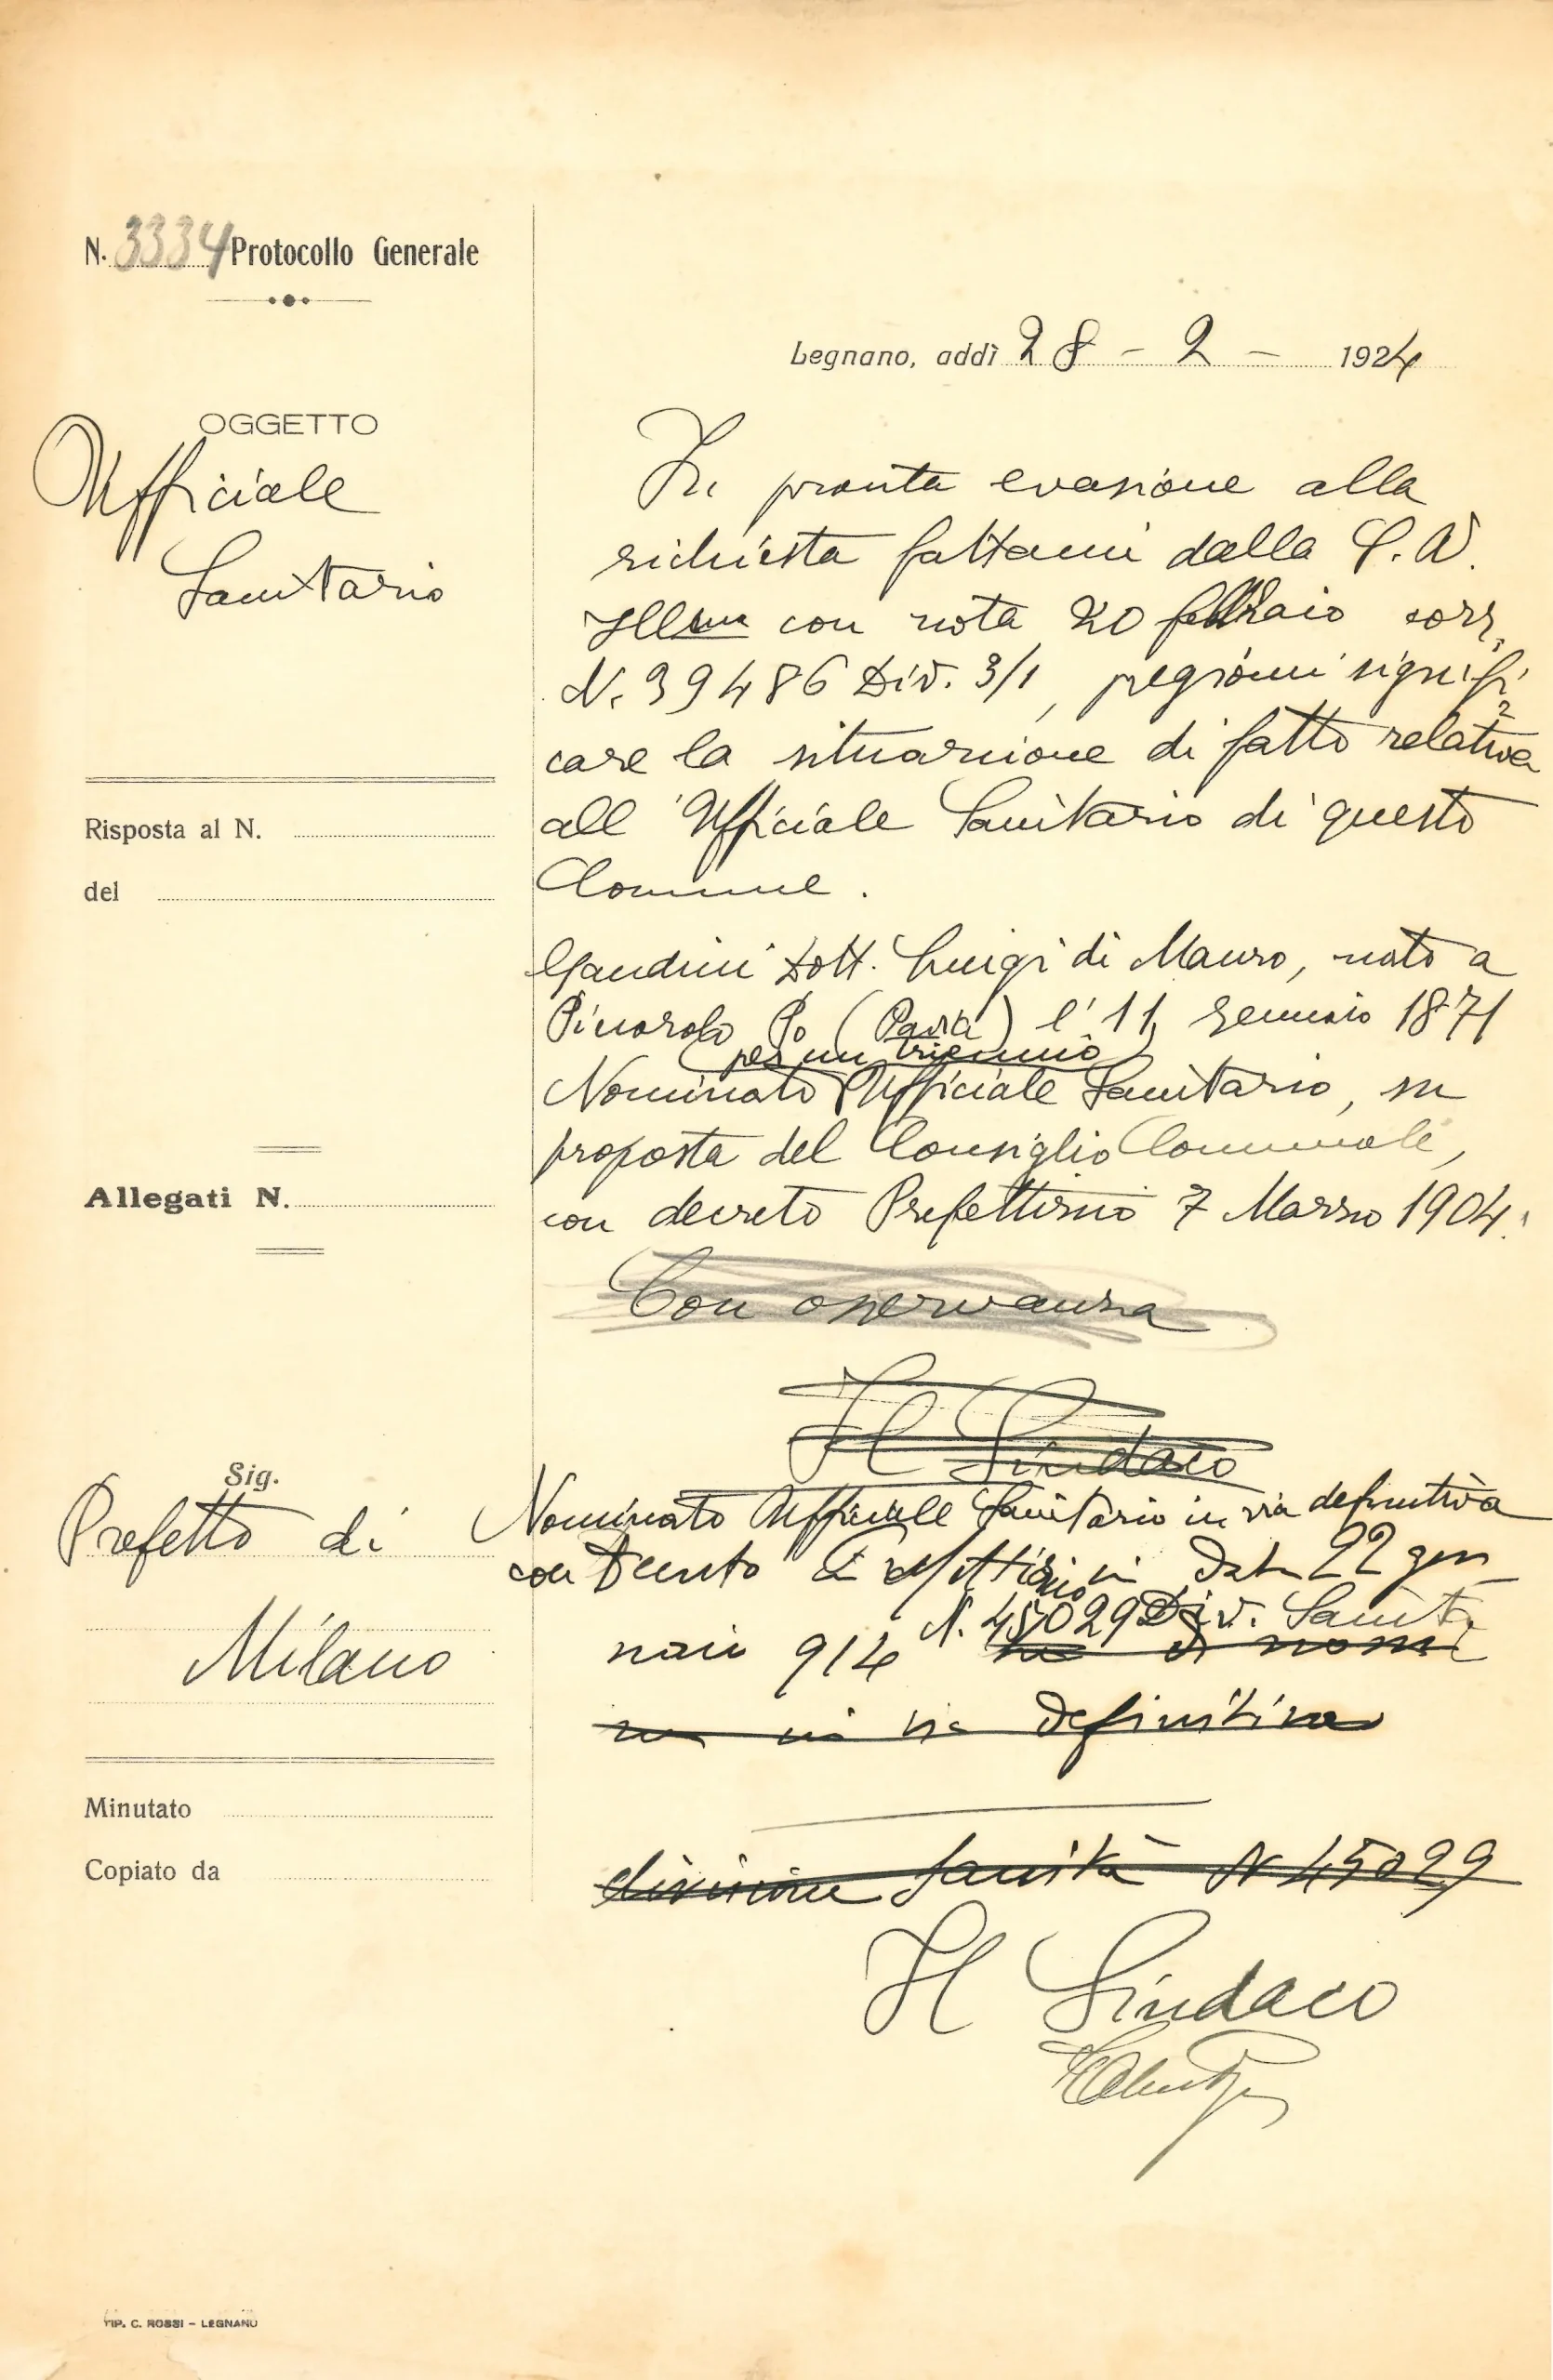 N. 3334 Protocollo Generale
Legnano, addì 28 - 2 - 1924
OGGETTO
Ufficiale
Sanitario
Risposta al N.
del
Allegati N.
Sig.
Prefetto di
Milano
Minutato
Copiato da
In pronta evasione alla
richiesta fattami dalla S. V.
Ill.ma con nota 20 febbraio corr.
N. 39486 Div. 3/1, pregiomi signifi
care la situazione di fatto relativa
all'Ufficiale Sanitario di questo
Comune.
Gandini Dott. Luigi di Mauro, nato a
Pinarolo Po (Pavia) l'11 Gennaio 1871
(per un triennio)
Nominato Ufficiale Sanitario, su
proposta del Consiglio Comunale,
con decreto Prefettizio 7 Marzo 1904.
Con osservanza
Il Sindaco
Nominato Ufficiale Sanitario in via definitiva
con Decreto Prefettizio in data 22 gen
naio 914 N. 45029 Div. Sanità
di nomi
na in via definitiva
divisione Sanità N 45029
Il Sindaco
TIP. C. ROSSI - LEGNANO